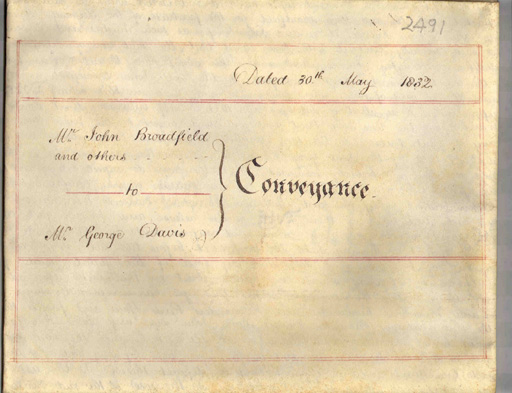 2491
Dated 30th May 1832
Mr. John Broadfield
and others
to
Conveyance.
Mr. George Davis